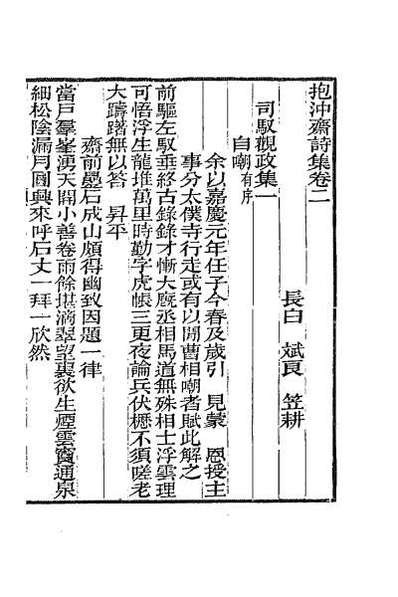 抱沖齋詩集卷二
長白 斌良 笠耕
司馭觀政集一
自嘲有序
余以嘉慶元年任子今春及歲引 見蒙 恩授主
事分太僕寺行走或有以閒舊相嘲者賦此解之
前驅左馭垂終古錄錄才慚大廐丞相馬道無殊相士浮雲理
可悟浮生龍堆萬里時勤字虎帳三更夜論兵伏櫪不須嗟老
大躊躇無以答 昇平
齋前壘石成山頗得幽致因題一律
當戶羣峯湧天開小善卷雨餘堪滴翠望裏欲生煙雲竇通泉
細松陰漏月圓興來呼石丈一拜一欣然